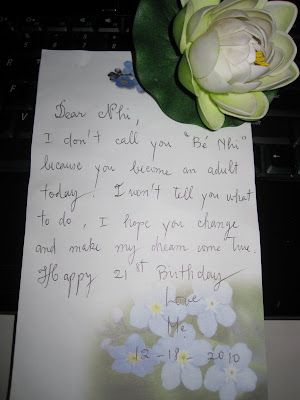 Dear Nhi,
I don't call you "Bé Nhi"
because you become an adult
today! I won't tell you what
to do, I hope you change
and make my dream come true.
Happy 21st Birthday
Love
Mẹ
12-18-2010